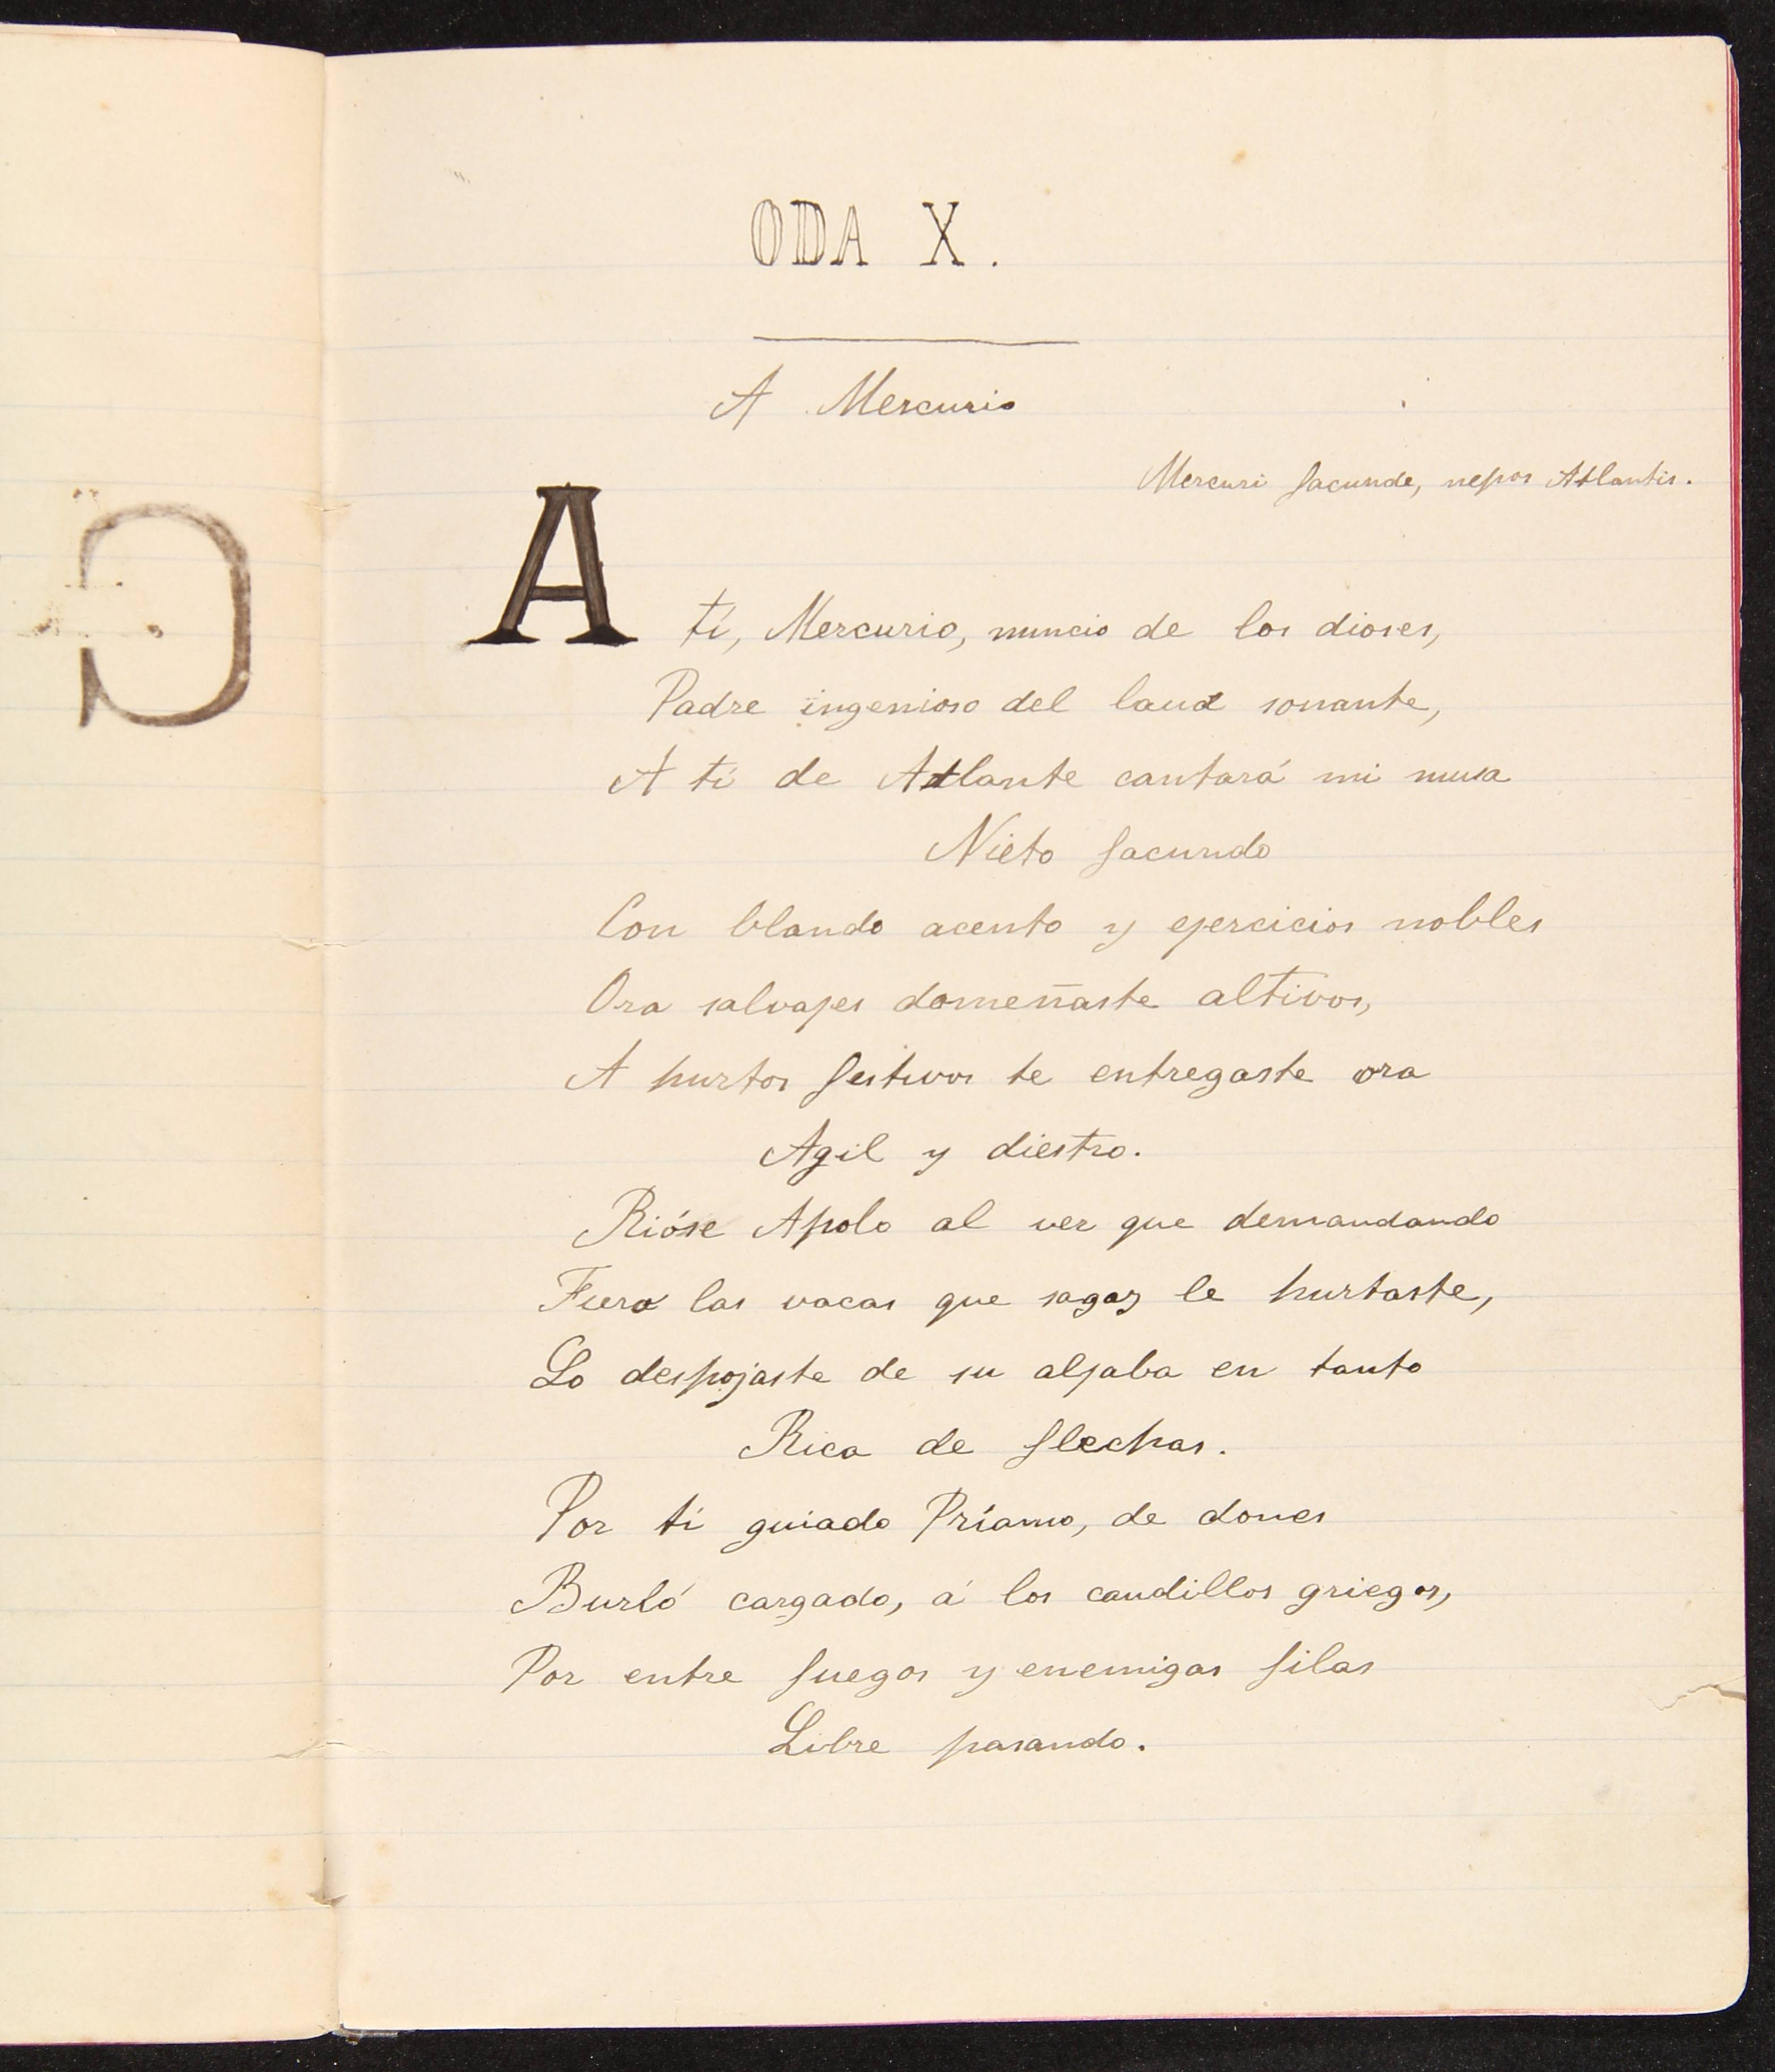 ODA X.
A Mercurio
Mercuri facunde, nepos Atlantis.
A tí, Mercurio, nuncio de los dioses,
Padre ingenioso del laud sonante,
A tí de Atlante cantará mi musa
Nieto facundo
Con blando acento y ejercicios nobles
Ora salvajes domeñaste altivos,
A hurtos festivos te entregaste ora
Agil y diestro.
Rióse Apolo al ver que demandando
Fiero las vacas que sagaz le hurtaste,
Lo despojaste de su aljaba en tanto
Rica de flechas.
Por tí guiado Príamo, de dones
Burló cargado, á los caudillos griegos,
Por entre fuegos y enemigas filas
Libre pasando.